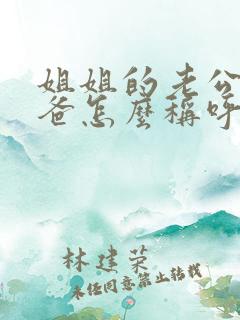 姐姐的老公
爸怎麼稱呼
林建荣
未经同意禁止转载